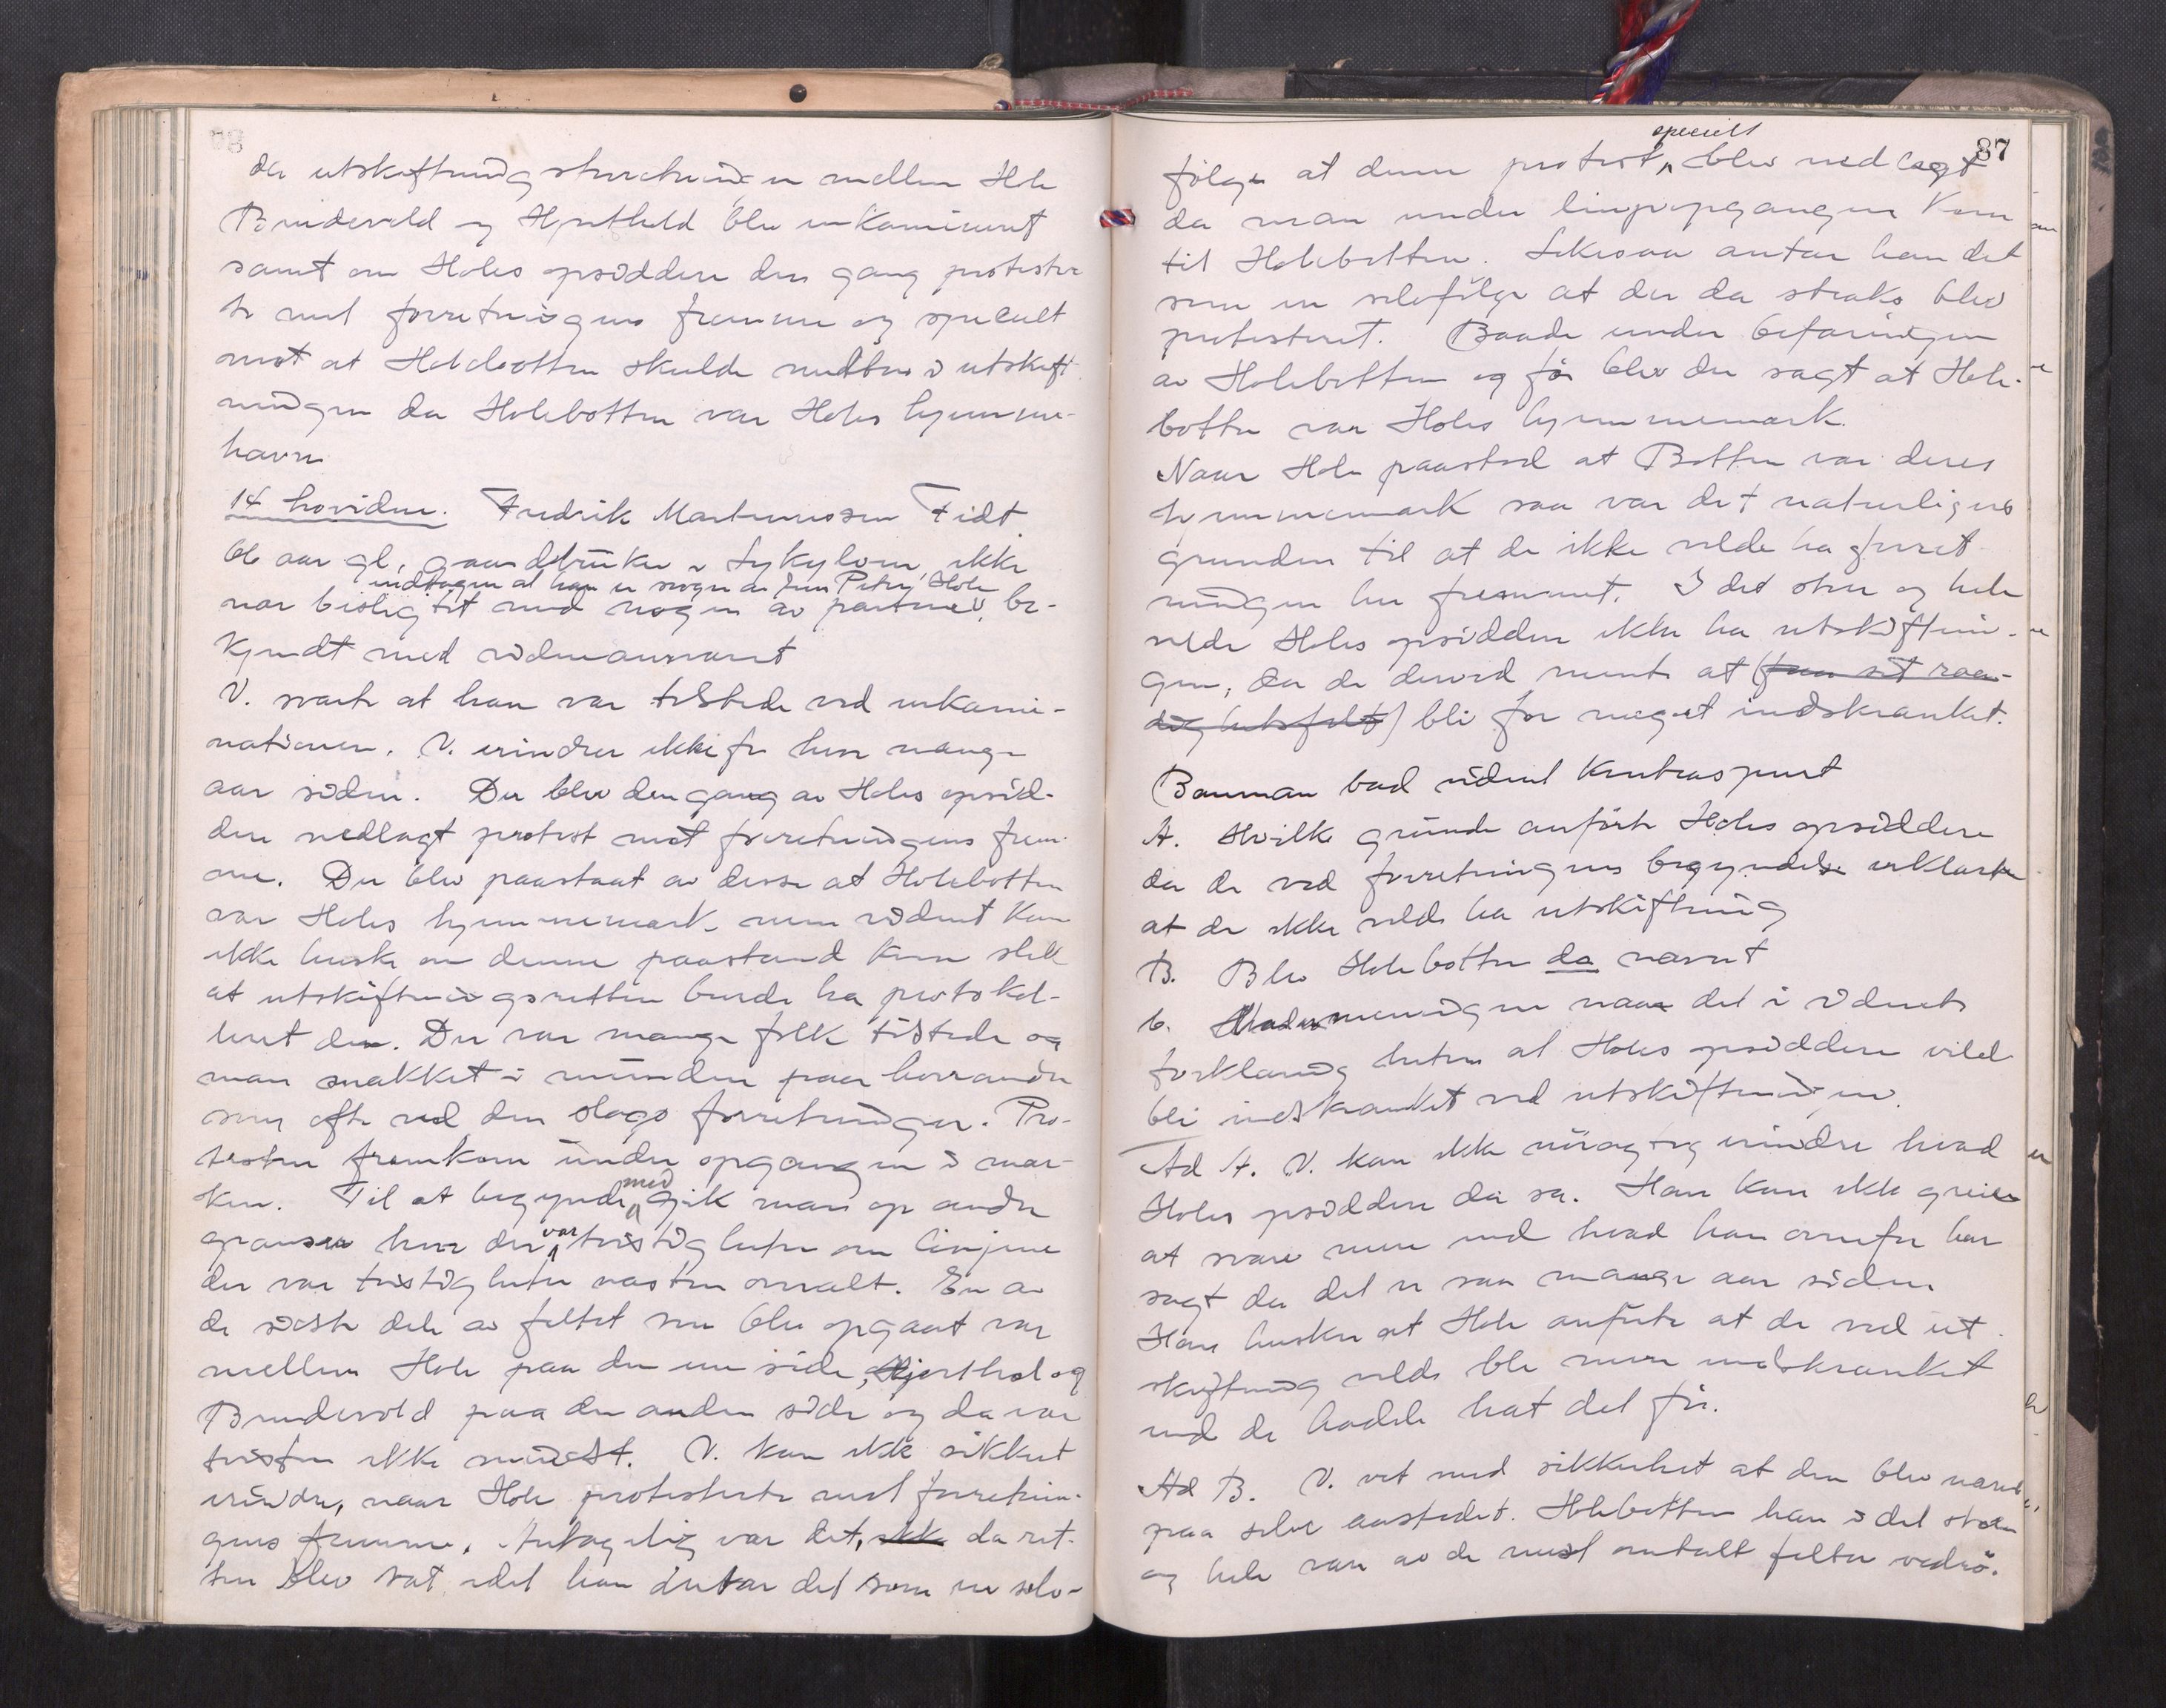 da utskiftningsstrækningen mellem Hole
Bundevold og Hjorthold blev unkamineret
samt om Holes opsiddere den gang protester
te mot forretningens fremme og specielt
mot at Holebotten skulde medtas i utskift-
ningen da Holebotten var Holes hjemme-
havn
14 hovidne. Fredrik Martinussen Tidt
66 aar gl, gaardbruker i Sykylven, ikke
undtagen at han er svoger av Jens Petry Hole
var besligtet med nogen av parterne, be-
kjendt med vidneansvaret
V. svarte at han var tilstede ved unkami-
nationen. V. erindrer ikke for hvor mange
aar siden. Der blev dengang av Holes opsid-
dere nedlagt protest mot forretningens frem-
me. Der blev paastaat av disse at Holebotten
var Holes hjemmemark, men vidnet kan
ikke huske om denne paastand kom slik
at utskiftningsretten burde ha protokol-
leret den. Der var mange folk tilstede og
man snakket i munden paa hverandre
som ofte ved den slags forretninger. Pro-
testen fremkom under opgangen i mar-
ken. Til at begynde med gik man op andre
grænser hvor der var tvistigheter om linjene
der var tvistigheter næsten overalt. En av
de sidste dele av feltet som blev opgaat var
mellem Hole paa den ene side, Hjorthol og
Bundevold paa den anden side og da var
tvisten ikke mindst. V. kan ikke sikkert
erindre, naar Hole protesterte mot forretnin-
gens fremme. Antagelig var det, ikke da ret-
ten blev sat idet han antar det som en selv-
87
specielt
følge at denne protest blev nedlagt
da man under linjeopgangen kom
til Holebotten. Likesaa antar han det
som en selvfølge at der da straks blev
protesteret. Baade under befaringen
av Holebotten og før blev der sagt at Hole-
botten var Holes hjemmemark.
Naar Hole paastod at Botten var deres
hjemmemark saa var det naturligvis
grunden til at de ikke vilde ha forret-
ningen her fremmet. I det store og hele
vilde Holes opsiddere ikke ha utskiftnin-
gen, da de derved mente at (faa sit raa-
dig utsfelt) bli for meget indskrænket.
Bauman bad vidnet kontraspurt
A. Hvilke grunde anførte Holes opsiddere
da de ved forretningens begyndelse erklærte
at de ikke vilde ha utskiftning
B. Blev Holebotten da nævnt
C. meningen naar det i vidnets
forklaring heter at Holes opsiddere vilde
bli indskrænket ved utskiftningen.
Ad A. V. kan ikke nøiagtig erindre hvad
Holes opsiddere da sa. Han kan ikke greie
at svare mere end hvad han ovenfor har
sagt da det er saa mange aar siden
Han husker at Hole anførte at de ved ut-
skiftning vilde bli mere indskrænket
end de hadde hat det før.
Ad B. V. vet med sikkerhet at den blev nævnt
paa selve aastedet. Holebotten han i det store
og hele var av de mest omtalt felter vedrø-